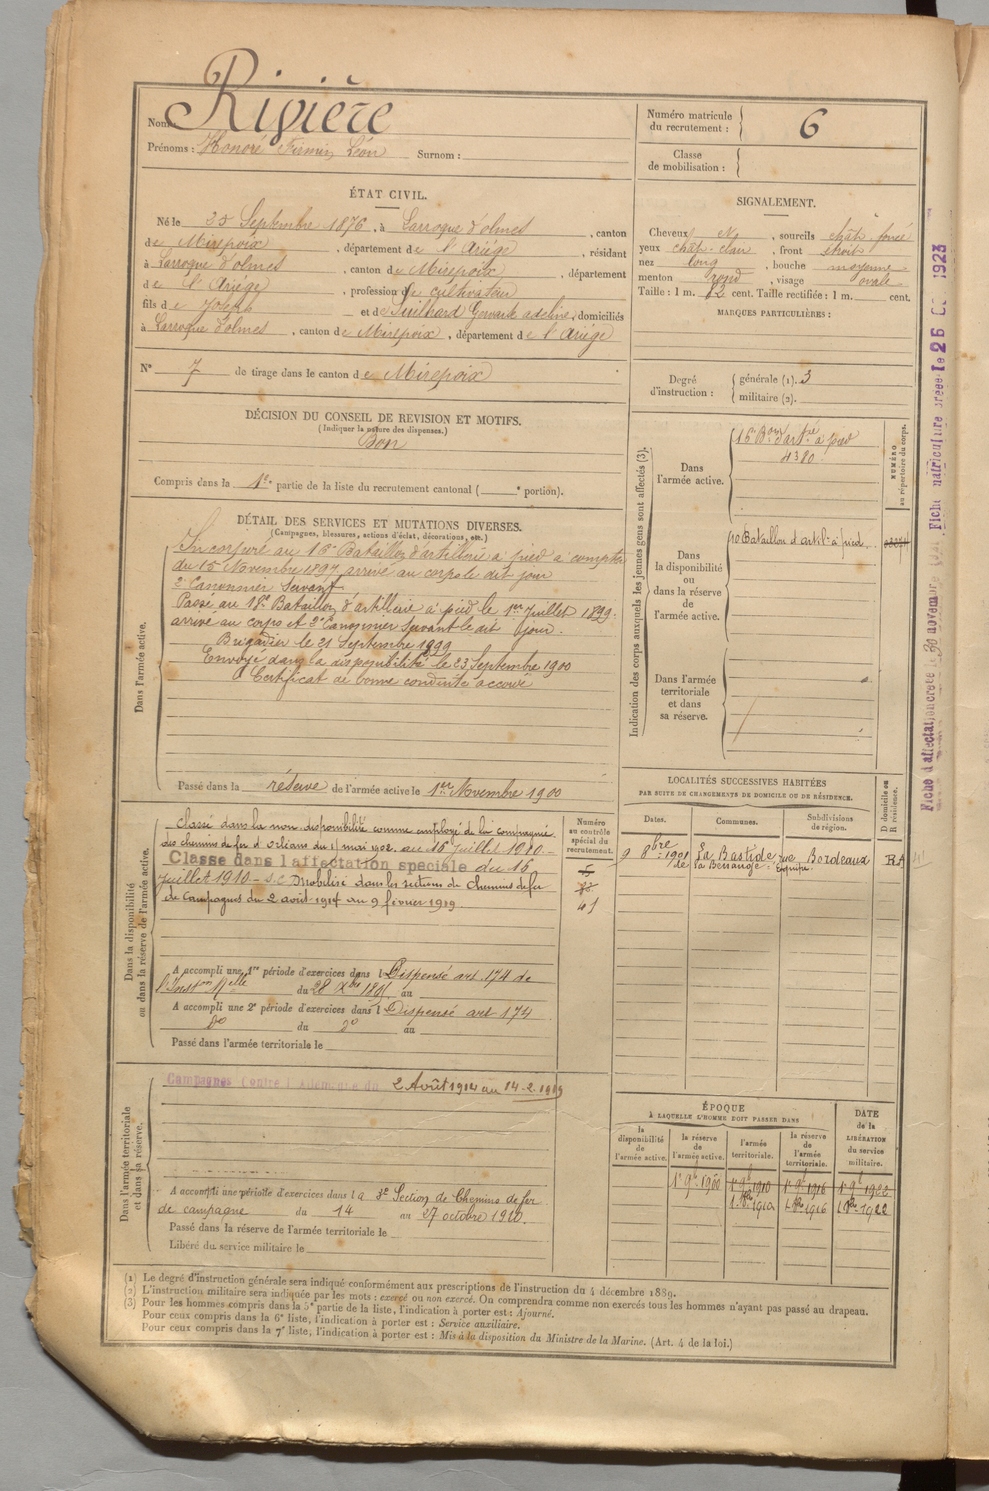 Nom : Rivière
Prénoms : Honoré Firmin Léon Surnom :
Numéro matricule du recrutement : 6
Classe de mobilisation :
ÉTAT CIVIL.
Né le 25 Septembre 1876, à Larroque d'olmes, canton
de Mirepoix, département de l'Ariége, résidant
à Larroque d'olmes, canton de Mirepoix, département
de l'Ariége, profession de cultivateur
fils de Joseph et de Suilhard Gervaise adeline, domiciliés
à Larroque d'olmes, canton de Mirepoix, département de l'Ariége
N° 7 de tirage dans le canton de Mirepoix
SIGNALEMENT.
Cheveux, sourcils chât. foncé
yeux chât-clair, front étroit
nez long, bouche moyenne
menton rond, visage ovale
Taille : 1 m. 62 cent. Taille rectifiée : 1 m. cent.
MARQUES PARTICULIÈRES :
Degré d'instruction : générale (1). 3
militaire (2).
DÉCISION DU CONSEIL DE REVISION ET MOTIFS.
(Indiquer la nature des dispenses.)
Bon
Compris dans la 1e partie de la liste du recrutement cantonal ( e portion).
DÉTAIL DES SERVICES ET MUTATIONS DIVERSES.
(Campagnes, blessures, actions d'éclat, décorations, etc.)
Dans l'armée active.
Incorporé au 16e Bataillon d'artillerie à pied à compter
du 15 Novembre 1897, arrivé au corps le dit jour
2e Canonnier Servant
Passé au 18e Bataillon d'artillerie à pied le 1er Juillet 1899.
arrivé au corps et 2e Canonnier Servant le dit jour.
Brigadier le 21 Septembre 1899
Envoyé dans la disponibilité le 23 Septembre 1900
Certificat de bonne conduite accordé
Passé dans la réserve de l'armée active le 1er Novembre 1900
Indication des corps auxquels les jeunes gens sont affectés (3).
NUMÉRO au répertoire du corps.
Dans l'armée active.
16e Bon d'artie à pied
4380
Dans la disponibilité ou dans la réserve de l'armée active.
10 Bataillon d'artil-à pied
Dans l'armée territoriale et dans sa réserve.
Fiche d'affectation créée le 30 novembre
Fiche matriculaire créée le 26 1923
Dans la disponibilité ou dans la réserve de l'armée active.
Classé dans la non disponibilité comme employé de la compagnie
des chemins de fer d'Orléans du 1 mai 1902 au 15 juillet 1910-
Classe dans l'affectation spéciale du 16
juillet 1910 - S.C. Mobilisé dans les sections de chemins de fer
de campagnes du 2 août 1914 au 9 février 1919
Numéro au contrôle spécial du recrutement.
41
A accompli une 1re période d'exercices dans l Dispensé art. 174 de
l'Inston Melle du 28 Xbre 1895 au
A accompli une 2e période d'exercices dans l Dispensé art 174
do du do au
Passé dans l'armée territoriale le
LOCALITÉS SUCCESSIVES HABITÉES
PAR SUITE DE CHANGEMENTS DE DOMICILE OU DE RÉSIDENCE.
Dates. Communes. Subdivisions de région. D domicile ou R résidence.
9 8bre 1901 La Bastide rue Bordeaux RA
de la Benauge
Dans l'armée territoriale et dans sa réserve.
Campagnes Contre l'Allemagne du 2 Août 1914 au 14-2-1919
A accompli une période d'exercices dans la 3e Section de Chemins de fer
de campagne du 14 au 27 octobre 1910.
Passé dans la réserve de l'armée territoriale le
Libéré du service militaire le
ÉPOQUE
À LAQUELLE L'HOMME DOIT PASSER DANS
la disponibilité de l'armée active. la réserve de l'armée active. l'armée territoriale. la réserve de l'armée territoriale. DATE de la LIBÉRATION du service militaire.
1er 9bre 1900 1er 9bre 1910 1er 9bre 1916 1er 9bre 1922
1910 1916 1922
(1) Le degré d'instruction générale sera indiqué conformément aux prescriptions de l'instruction du 4 décembre 1889.
(2) L'instruction militaire sera indiquée par les mots : exercé ou non exercé. On comprendra comme non exercés tous les hommes n'ayant pas passé au drapeau.
(3) Pour les hommes compris dans la 5e partie de la liste, l'indication à porter est : Ajourné.
Pour ceux compris dans la 6e liste, l'indication à porter est : Service auxiliaire.
Pour ceux compris dans la 7e liste, l'indication à porter est : Mis à la disposition du Ministre de la Marine. (Art. 4 de la loi.)